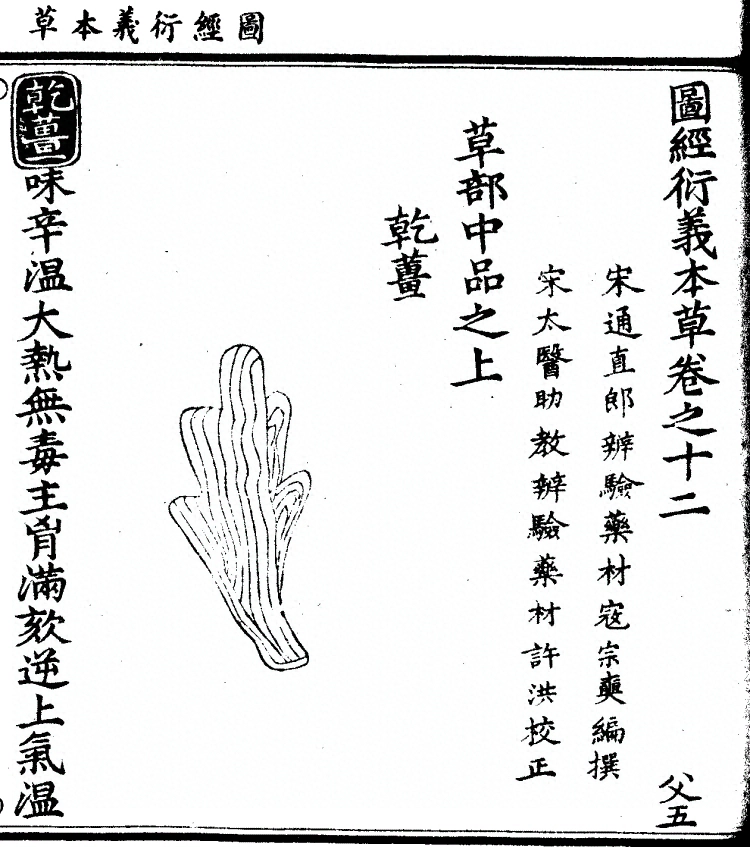 圖經衍義本草
圖經衍義本草卷之十二
父五
宋通直郎辨驗藥材寇宗奭編撰
宋太醫助教辨驗藥材許洪校正
草部中品之上
乾薑
乾薑味辛溫大熱無毒主胷滿欬逆上氣溫